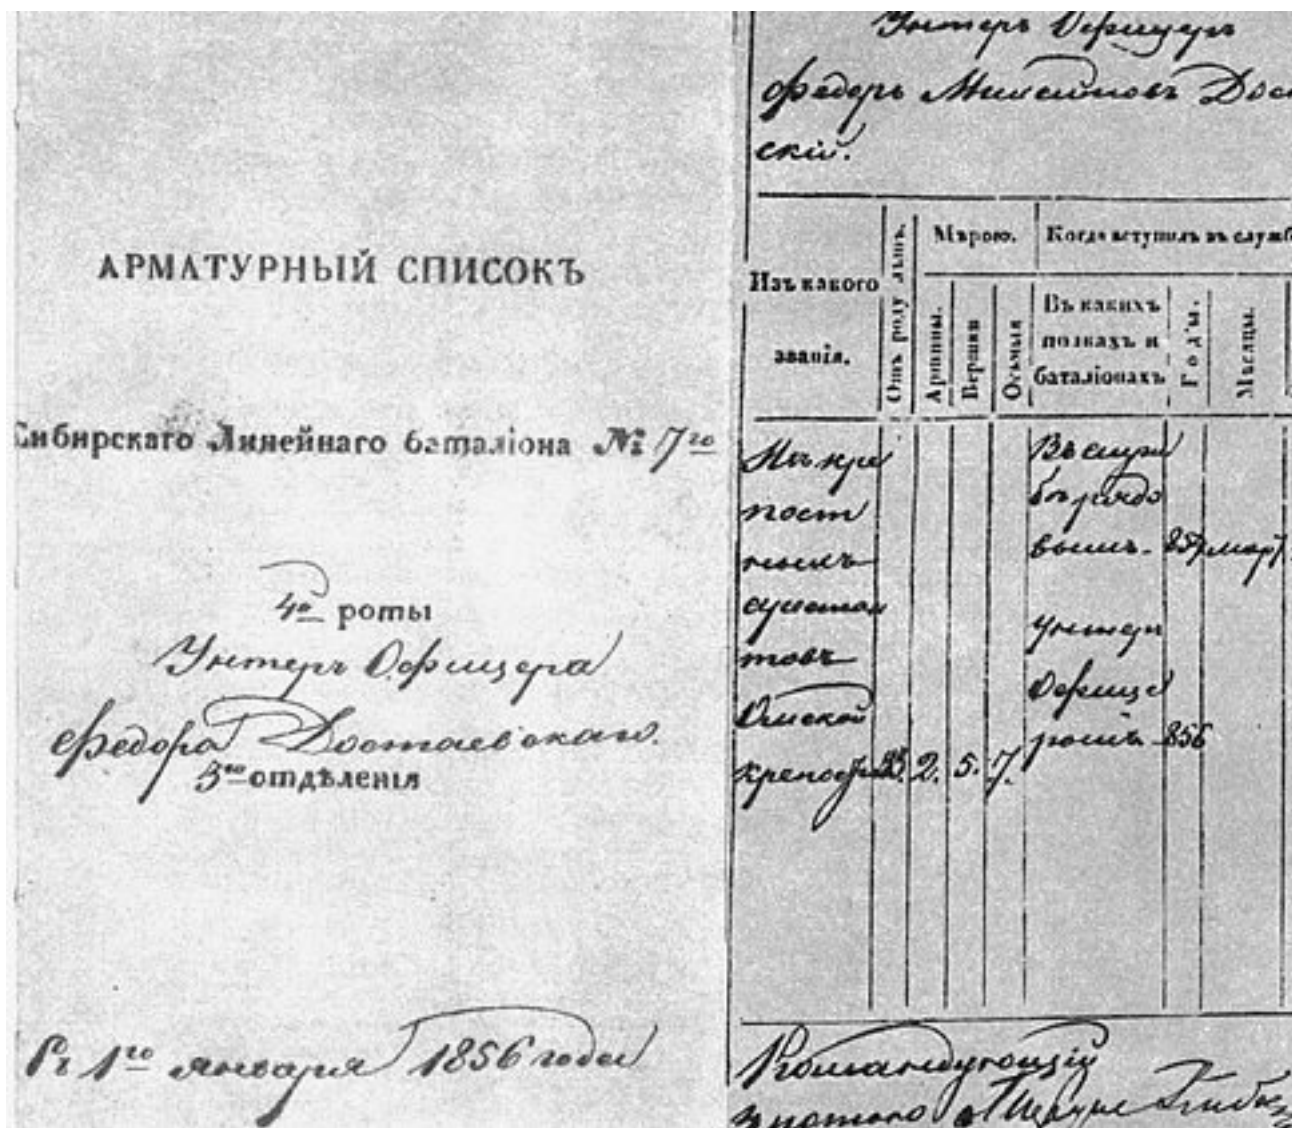 АРМАТУРНЫЙ СПИСОКЪ
Сибирскаго Линейнаго баталіона № 7го
4й роты
Унтеръ Офицера
Федора Достаевскаго.
3го отдѣленія
Съ 1го января 1856 года
Унтеръ Офицеръ
Федоръ Дос
скій.
Изъ какого
званія.
Отъ роду лѣтъ.
Мѣрою.
Аршины.
Вершки
Осьмыя
Когда вступилъ въ служб
Въ какихъ
полкахъ и
баталіонахъ
Годы.
Мѣсяцы.
Изъ кре
пост
ныхъ
арестан
товъ
Омской
крепости
2. 5. 7.
Въ служ
бѣ рядо
вымъ
март.
Унтеръ
Офице
ромъ 856
Командующій